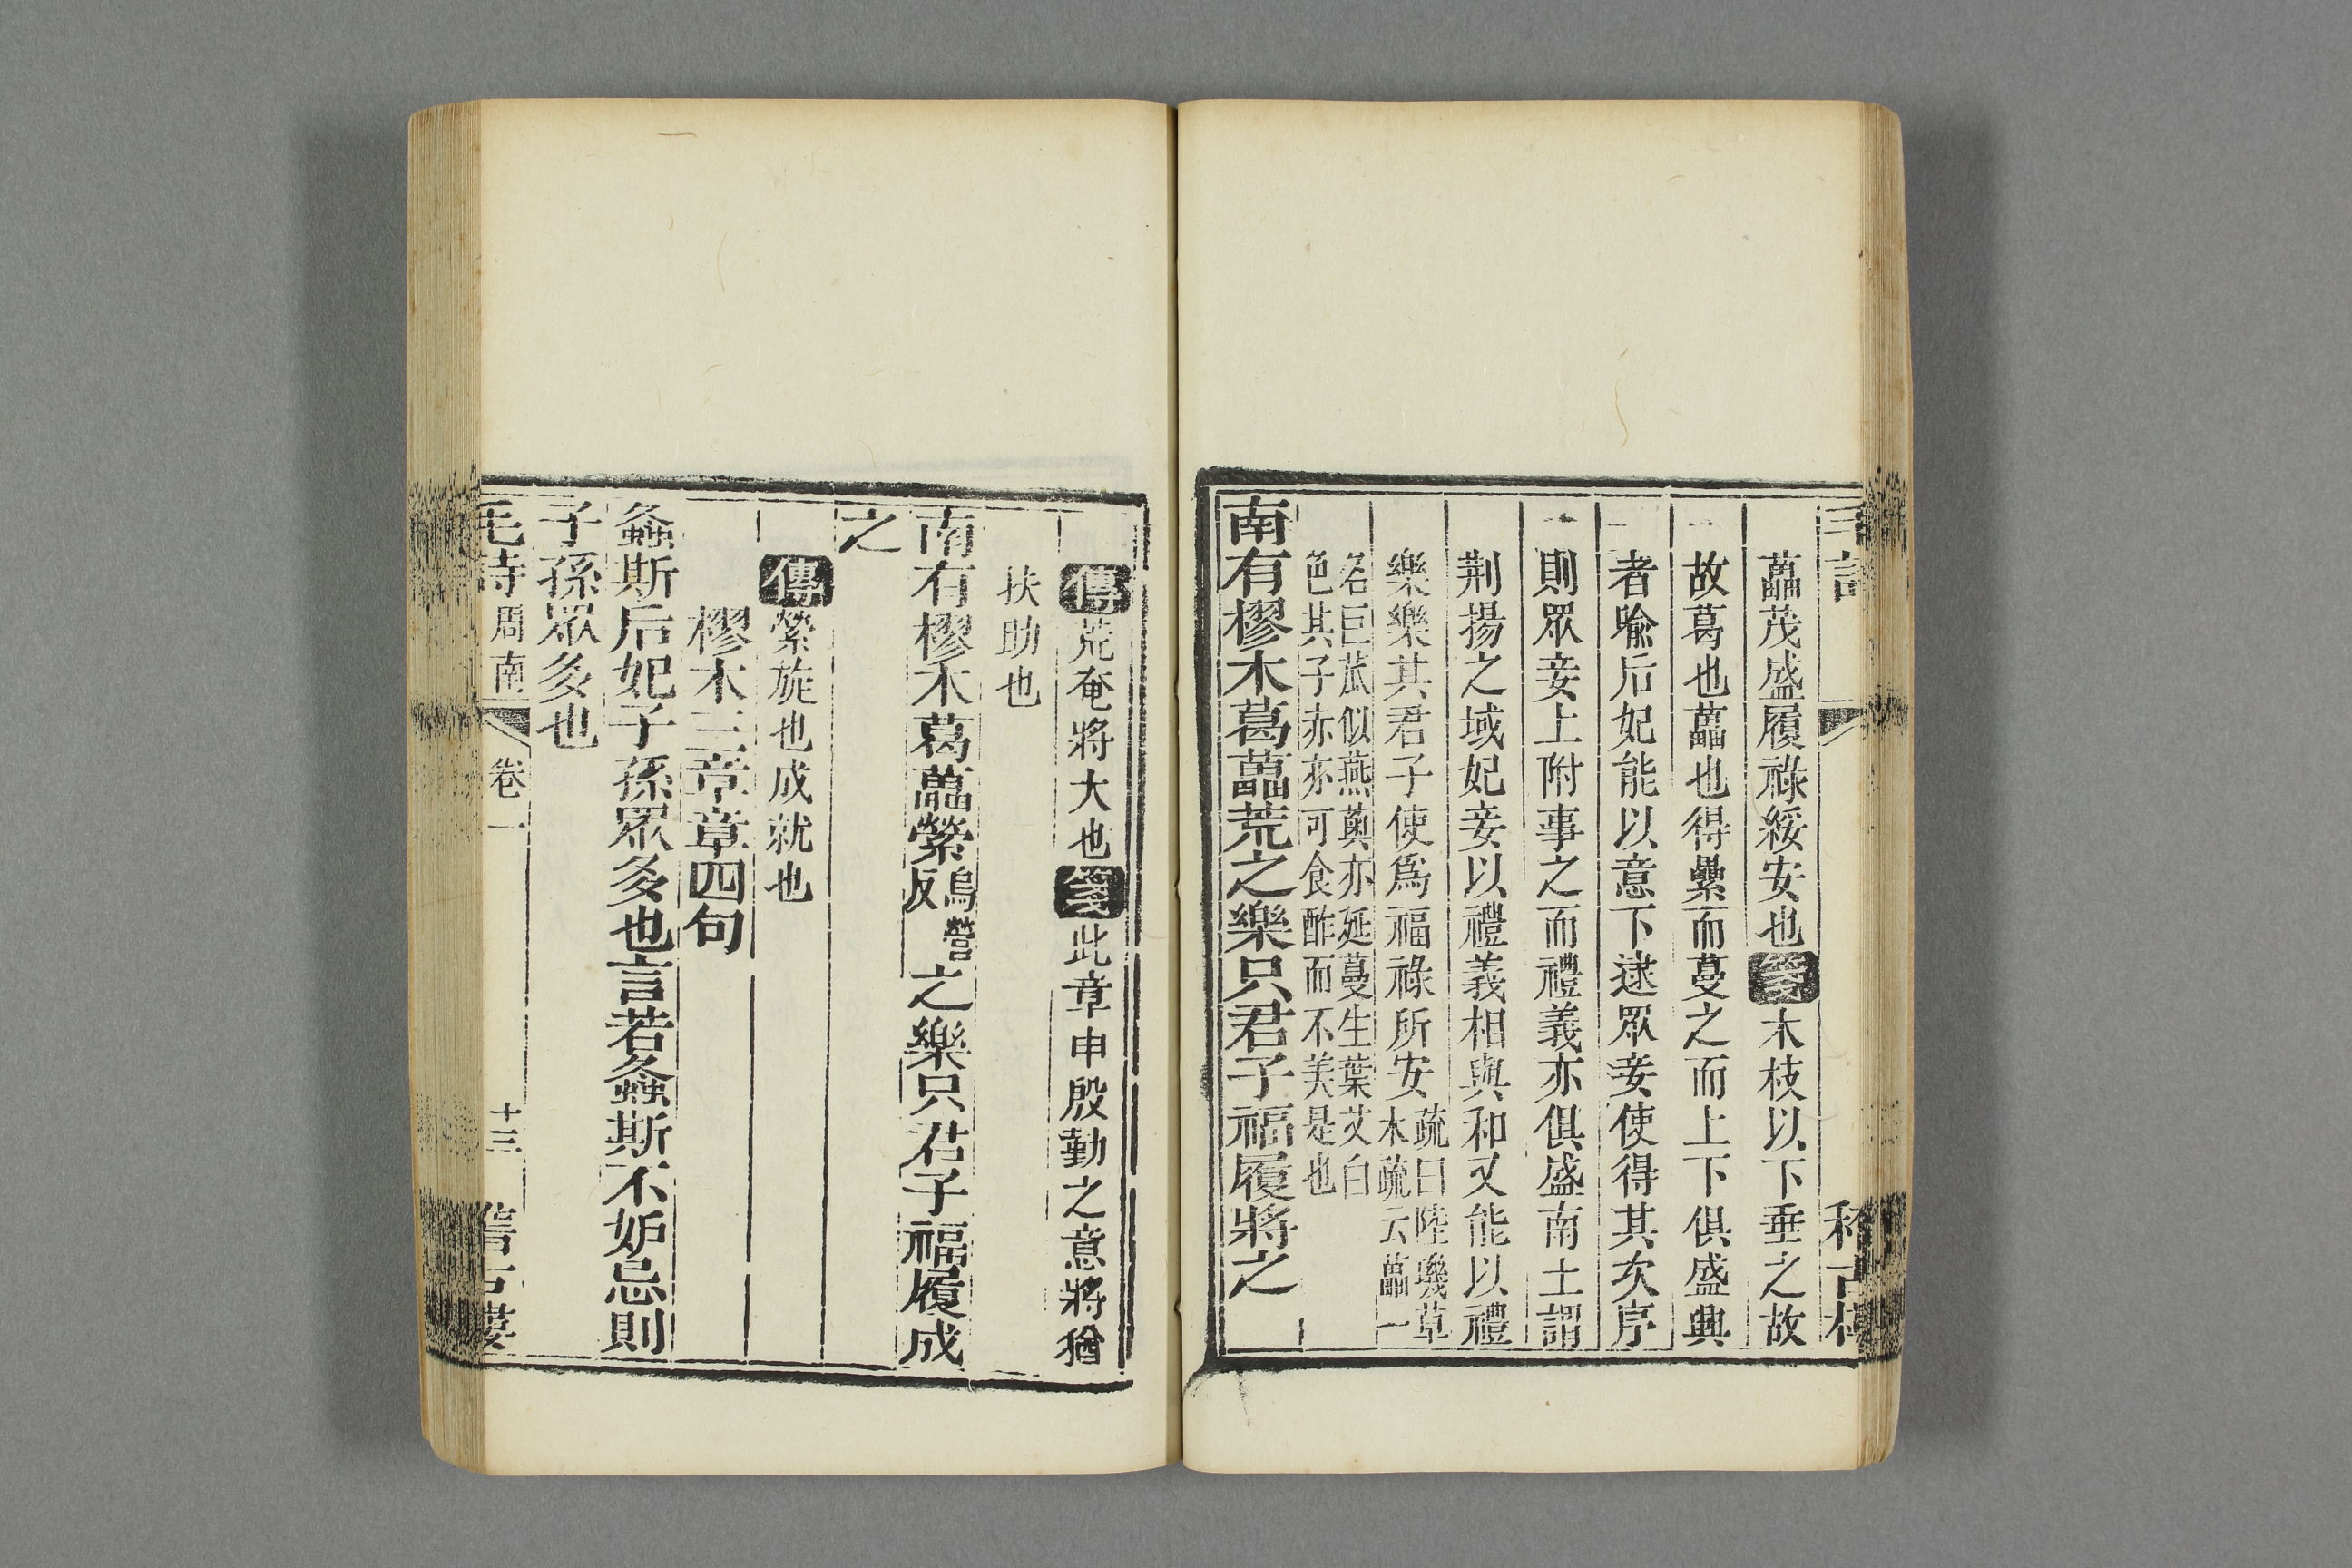 藟茂盛履祿綏安也箋木枝以下垂之故
故葛也藟也得纍而蔓之而上下俱盛興
者喻后妃能以意下逮眾妾使得其次序
則眾妾上附事之而禮義亦俱盛南土謂
荆揚之域妃妾以禮義相與和又能以禮
樂樂其君子使爲福祿所安
疏曰陸璣草
木疏云藟一
名巨苽似燕薁亦延蔓生葉艾白
色其子赤亦可食酢而不美是也
南有樛木葛藟荒之樂只君子福履將之
傳荒奄將大也箋此章申殷勤之意將猶
扶助也
南有樛木葛藟縈烏營反之樂只君子福履成
之
傳縈旋也成就也
樛木三章章四句
螽斯后妃子孫眾多也言若螽斯不妒忌則
子孫眾多也
毛詩周南 卷一 十三